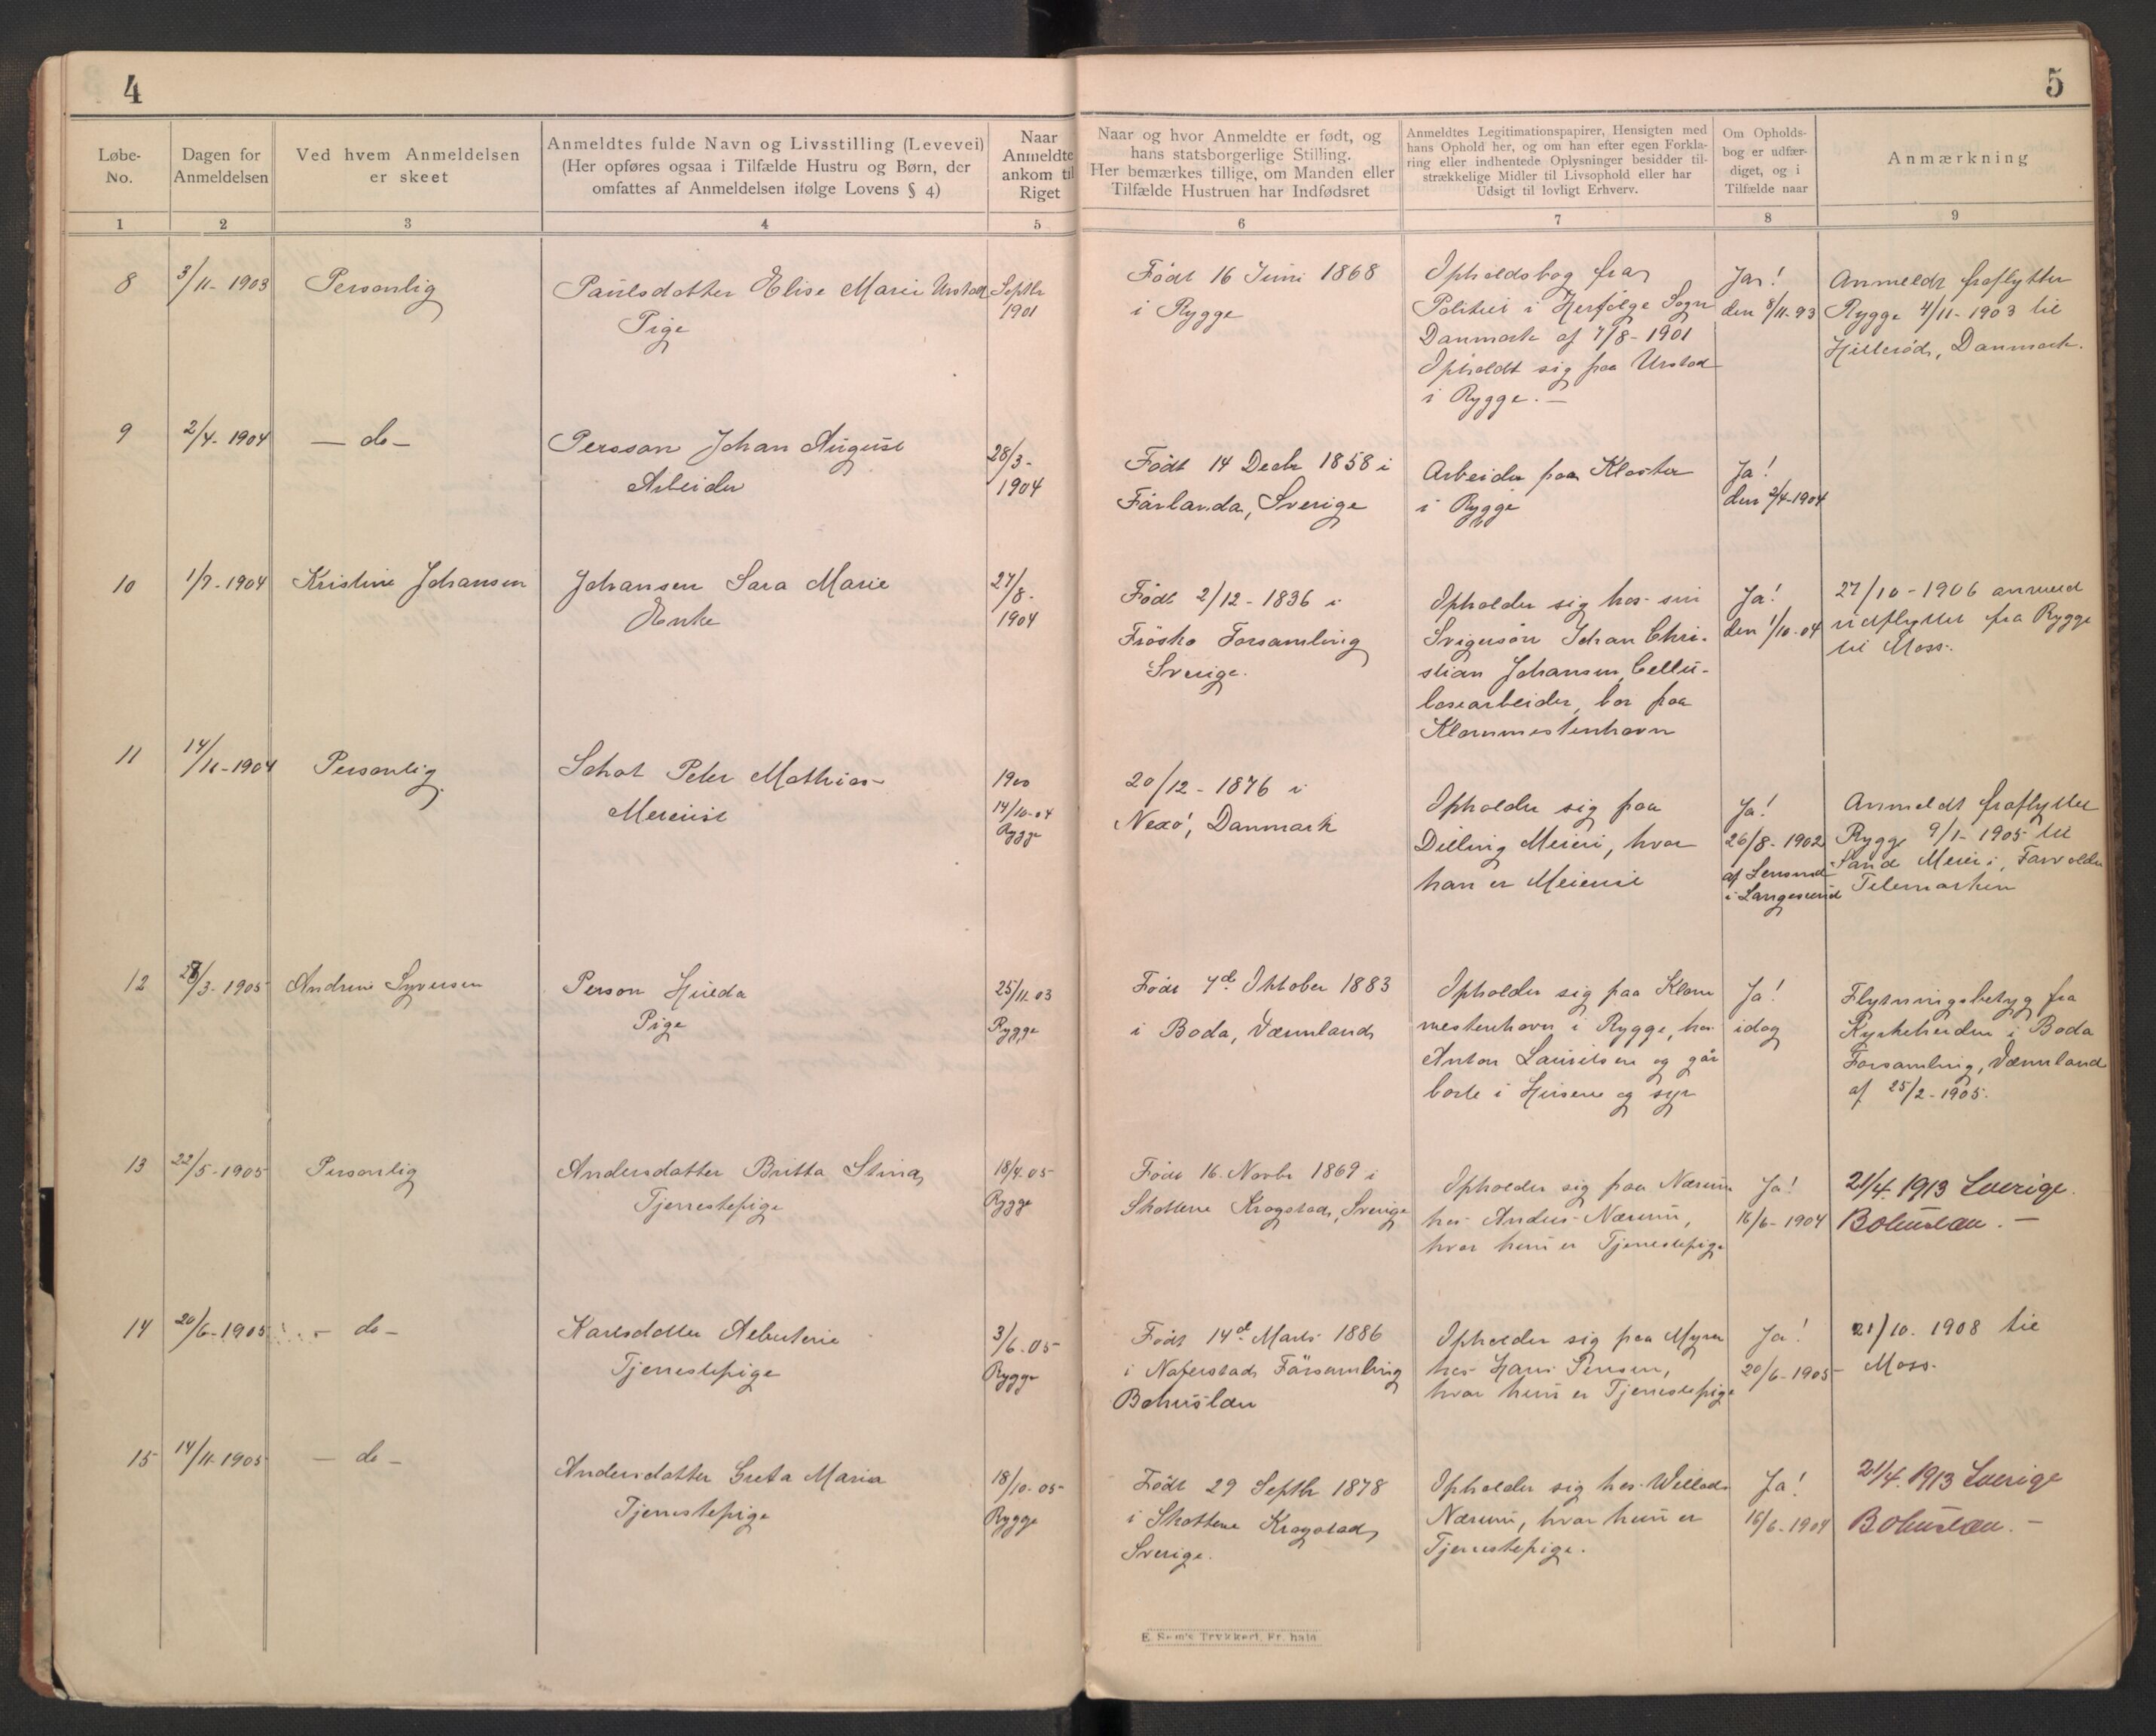 4
5
Løbe-
No.
Dagen for
Anmeldelsen
Ved hvem Anmeldelsen
er skeet
Anmeldtes fulde Navn og Livsstilling (Levevei)
(Her opføres ogsaa i Tilfælde Hustru og Børn, der
omfattes af Anmeldelsen ifølge Lovens § 4)
Naar
Anmeldte
ankom til
Riget
Naar og hvor Anmeldte er født, og
hans statsborgerlige Stilling.
Her bemærkes tillige, om Manden eller
Tilfælde Hustruen har Indfødsret
Anmeldtes Legitimationspapirer, Hensigten med
hans Ophold her, og om han efter egen Forkla-
ring eller indhentede Oplysninger besidder til-
strækkelige Midler til Livsophold eller har
Udsigt til lovligt Erhverv.
Om Opholds-
bog er udfær-
diget, og i
Tilfælde naar
Anmærkning
1 2 3 4 5 6 7 8 9
8
3/11-1903
Personlig
Paulsdatter Elise Marie Urstad
Pige
Septbr
1901
Född 16 Juni 1868
i Rygge
Opholdsbog fra
Politiet i Herfølge Sogn
Danmark af 7/8-1901
Opholdt sig paa Urstad
i Rygge. —
Ja!
den 8/11-93
Anmeldt fraflyttet
Rygge 4/11-1903 til
Hillerød, Danmark.
9
2/4-1904
— do —
Persson Johan August
Arbeider
28/3-
1904
Födt 14 Decbr 1858 i
Färlanda, Sverige
Arbeider paa Kloster
i Rygge
Ja!
den 2/4-1904
10
1/7-1904
Kristine Johansen
Johansen Sara Marie
Enke
27/8-
1904
Födt 2/12-1836 i
Frösko Forsamling
Sverige.
Opholder sig hos sin
Svigersøn Johan Chri-
stian Johansen, Cellu-
losearbeider, bor paa
Klommestenhavn
Ja!
den 1/10-04
27/10-1906 anmeld
udflyttet fra Rygge
til Moss.
11
14/11-1904
Personlig
Schat Peter Mathias
Meierist
1900
14/10-04
Rygge
20/12-1876 i
Nexø, Danmark
Opholder sig paa
Dilling Meieri, hvor
han er Meierist
Ja!
26/8-1902
af Lensmd
i Langesund
Anmeldt fraflyttet
Rygge 9/1-1905 til
Sand Meieri,
Telemarken
12
/3-1905
Andrine Syversen
Person Hilda
Pige
25/11.03
Rygge
Födt 7de Oktober 1883
i Boda, Värmland
Opholder sig paa Klom
mestenhavn i Rygge, hos
Anton Lauritsen og går
borte i Husene og syr
Ja!
idag
Flytningsbetyg fra
Kyrkeherden i Boda
Forsamling, Värmland
af 25/2-1905.
13
22/5-1905
Personlig
Andersdatter Britta Stina
Tjenestepige
18/4.05
Rygge
Födt 16. Novbr 1869 i
Skottene Krogstad, Sverige
Opholder sig paa Nærum
hos Anders Nærum,
hvor hun er Tjenestepige
Ja!
16/6-1904
21/4.1913 Sverige.
Bohuslæn. —
14
20/6-1905
— do —
Karlsdatter Albertine
Tjenestepige
3/6.05
Rygge
Födt 14de Marts 1886
i Naverstad Församling
Bohuslän
Opholder sig paa Myrer
hos Hans Jensen,
hvor hun er Tjenestepige
Ja!
20/6-1905
21/10.1908 til
Moss.
15
14/11-1905
— do —
Andersdatter Greta Maria
Tjenestepige
18/10-05
Rygge
Födt 29 Septbr 1878
i Skottene Krogstad,
Sverige.
Opholder sig hos Willads
Nærum, hvor hun er
Tjenestepige.
Ja!
16/6-1904
21/4.1913 Sverige
Bohuslæn. —
E. Sem's Trykkeri, Fr. hald